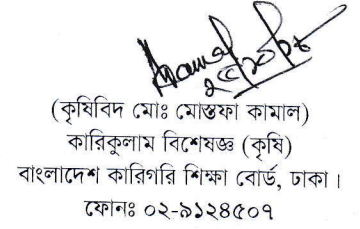 (কৃষিবিদ মোঃ মোস্তফা কামাল)
কারিকুলাম বিশেষজ্ঞ (কৃষি)
বাংলাদেশ কারিগরি শিক্ষা বোর্ড, ঢাকা।
ফোনঃ ০২-৯১২৪৫০৭